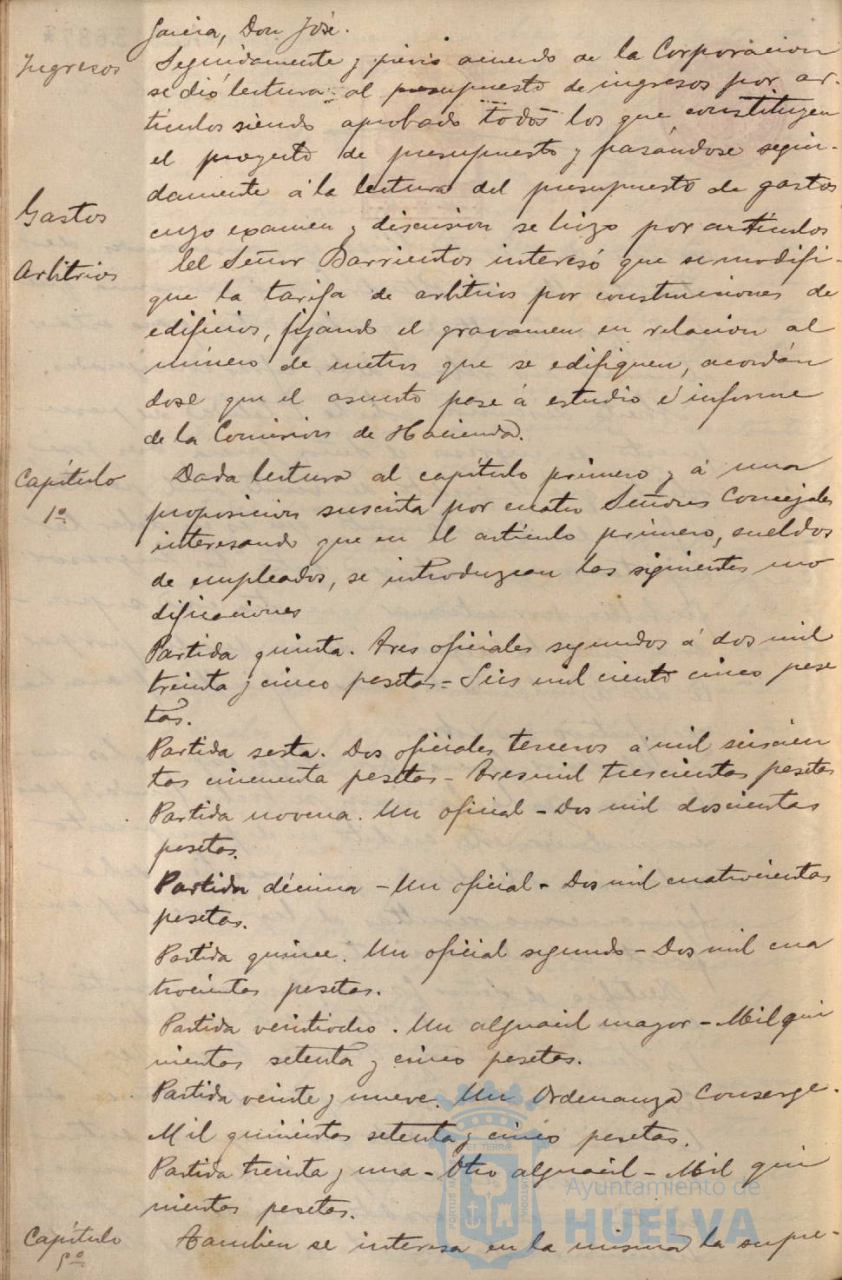 Garcia, Don José.
Ingresos
Seguidamente y previo acuerdo de la Corporacion
se dió lectura al presupuesto de ingresos por ar-
tículos siendo aprobado todos los que constituyen
el proyecto de presupuesto y pasándose segui-
damente á la lectura del presupuesto de gastos
Gastos
cuyo examen y discusion se hizo por artículos
Arbitrios
El Señor Barrientos interesó que se modifi-
que la tarifa de arbitrios por construciones de
edificios, fijando el gravamen en relacion al
número de metros que se edifiquen, acordán
dose que el asunto pase á estudio é informe
de la Comision de Hacienda.
Capítulo
1º
Dada lectura al capítulo primero y á una
proposicion suscrita por cuatro Señores Concejales
interesando que en el artículo primero, sueldos
de empleados, se introduzcan las siguientes mo
dificaciones
Partida quinta. Tres oficiales segundos á dos mil
treinta y cinco pesetas = Seis mil ciento cinco pese
tas.
Partida sesta. Dos oficiales terceros á mil seiscien
tas cincuenta pesetas - Tres mil trescientas pesetas
Partida novena. Un oficial - Dos mil doscientas
pesetas.
Partida décima - Un oficial - Dos mil cuatrocientas
pesetas.
Partida quince. Un oficial segundo - Dos mil cua
trocientas pesetas.
Partida veintiocho. Un alguacil mayor - Mil qui
nientas setenta y cinco pesetas.
Partida veinte y nueve. Un Ordenanza Conserge.
Mil quinientas setenta y cinco pesetas.
Partida treinta y una - Otro alguacil - Mil qui
nientas pesetas.
Capítulo
5º
Tambien se interesa en la misma la supre-
Ayuntamiento de
HUELVA